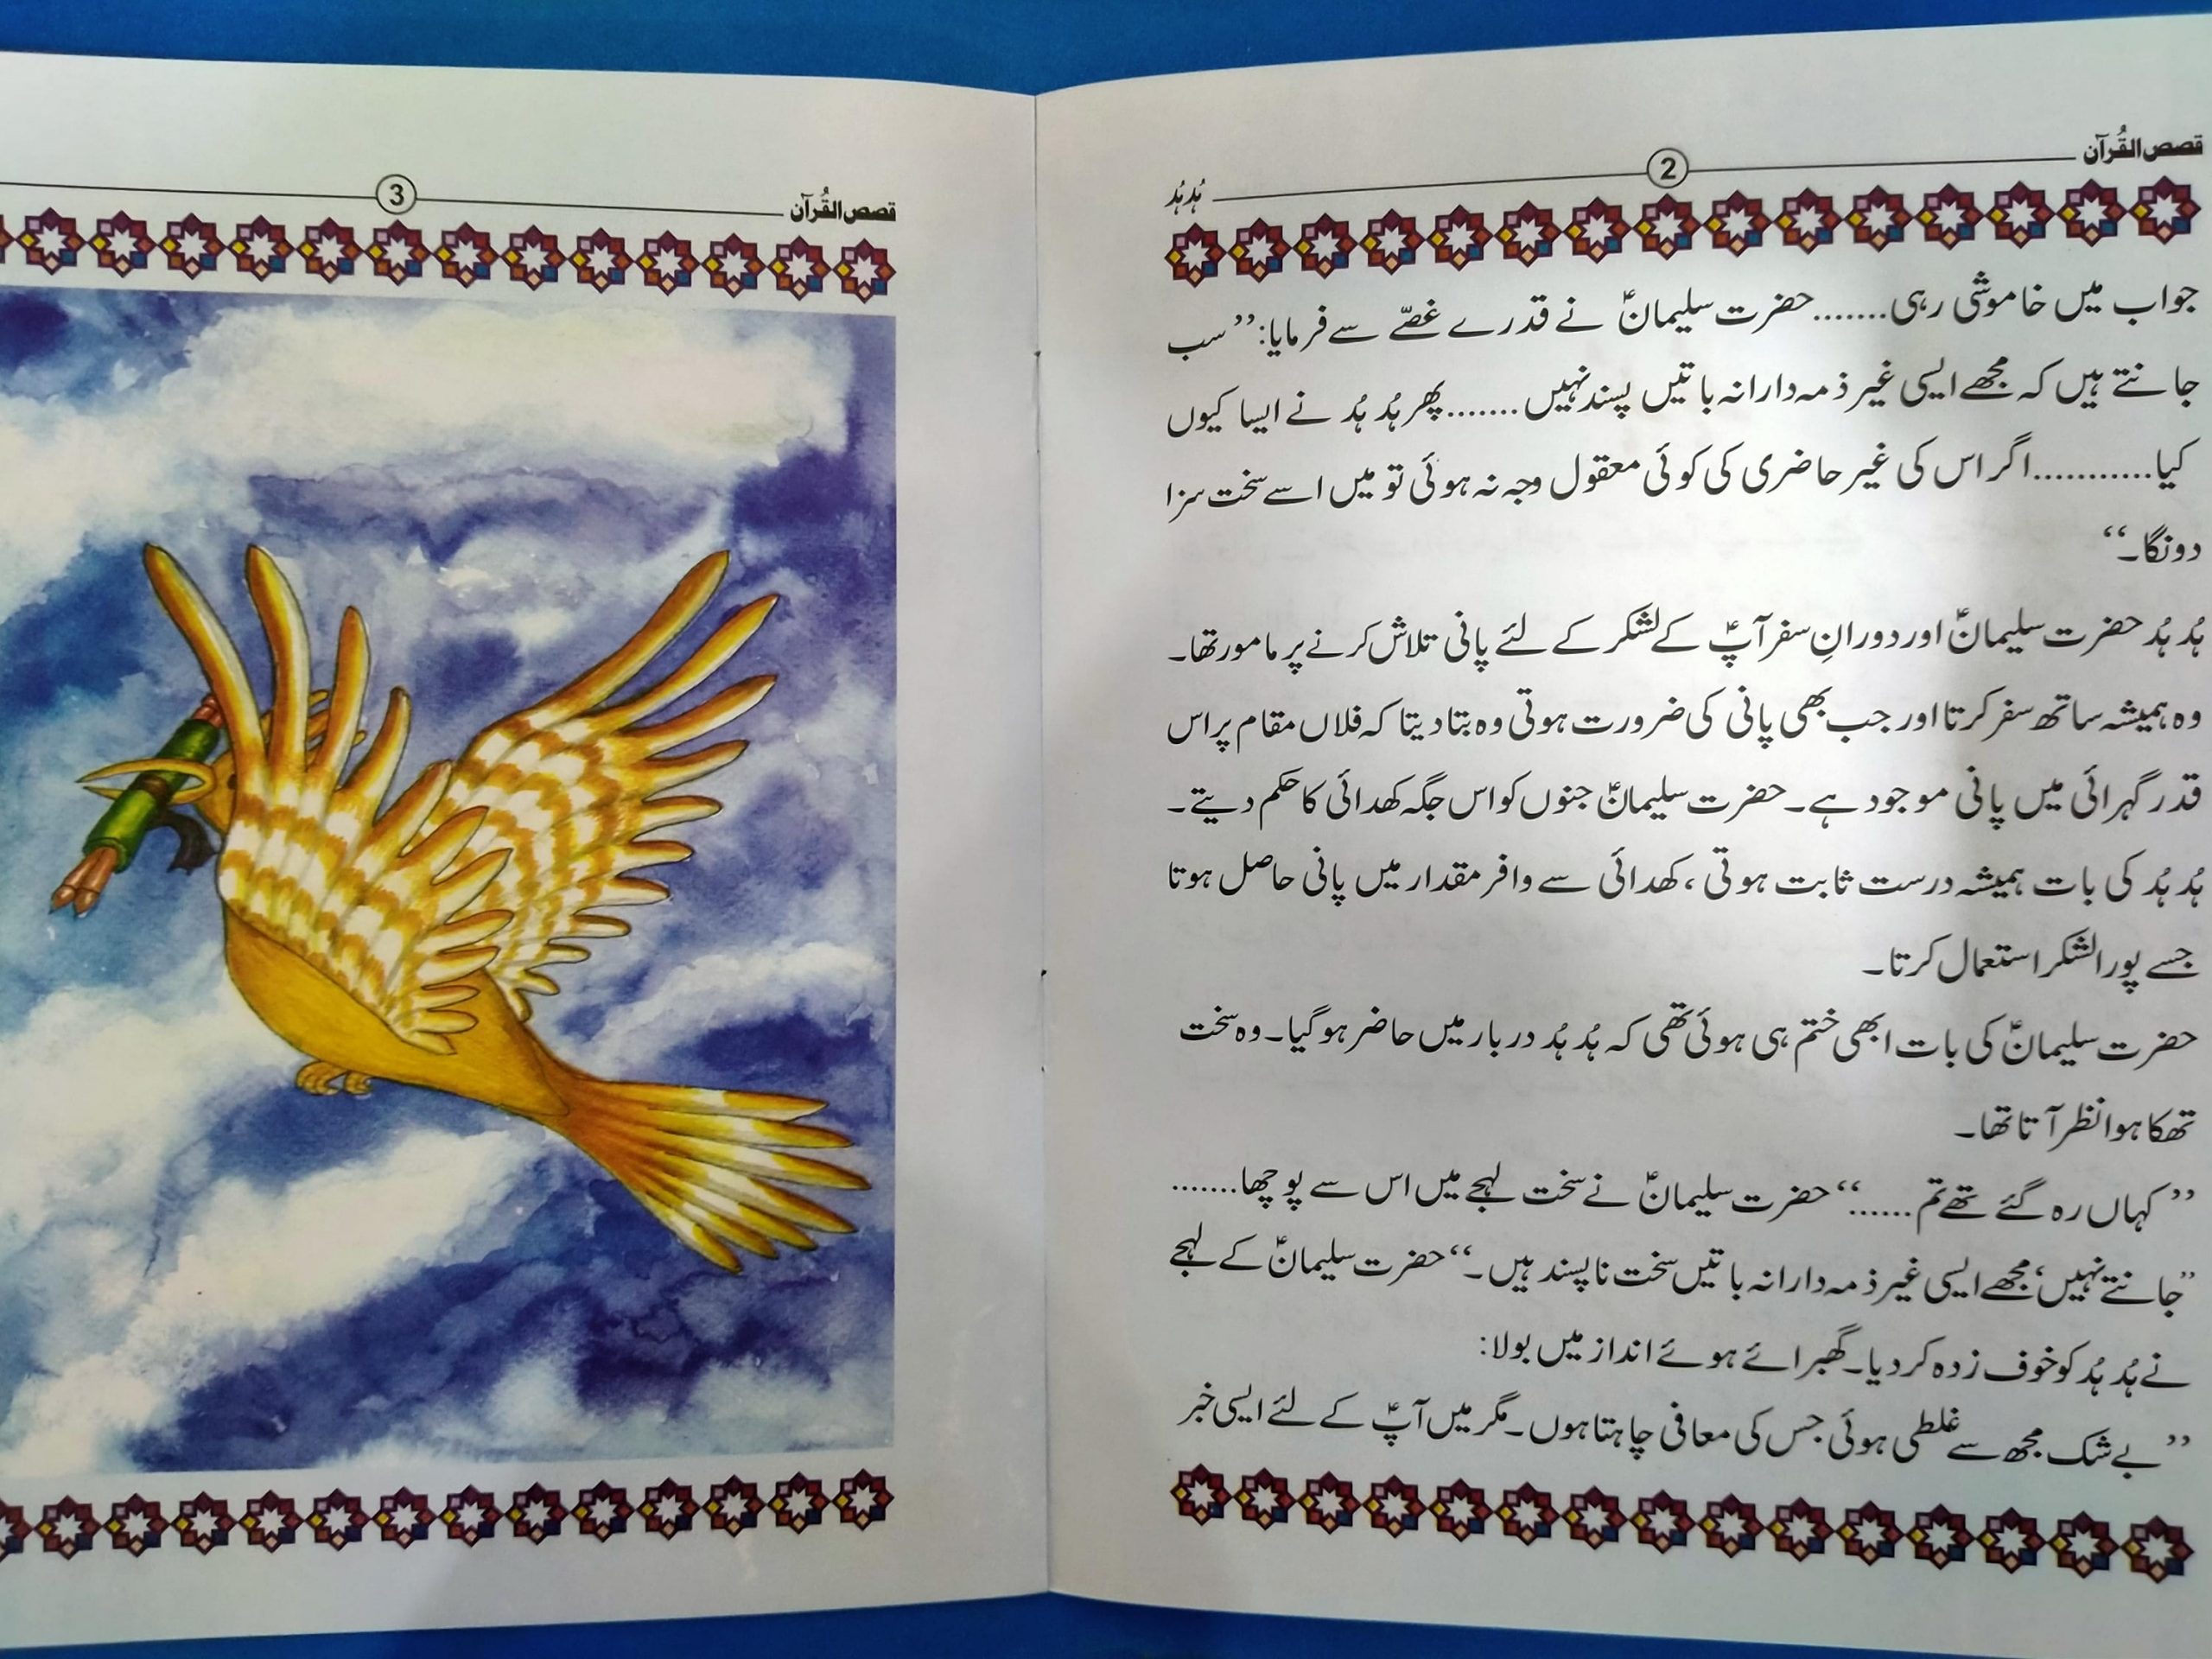 قصص القُرآن
2
ہُدہُد
جواب میں خاموشی رہی.......حضرت سلیمانؑ نے قدرے غصّے سے فرمایا:”سب
جانتے ہیں کہ مجھے ایسی غیر ذمہ دارانہ باتیں پسند نہیں.......پھر ہُد ہُد نے ایسا کیوں
کیا...........اگر اس کی غیر حاضری کی کوئی معقول وجہ نہ ہوئی تو میں اسے سخت سزا
دونگا۔“
ہُد ہُد حضرت سلیمانؑ اور دورانِ سفر آپؑ کے لشکر کے لئے پانی تلاش کرنے پر مامور تھا۔
وہ ہمیشہ ساتھ سفر کرتا اور جب بھی پانی کی ضرورت ہوتی وہ بتا دیتا کہ فلاں مقام پر اس
قدر گہرائی میں پانی موجود ہے۔ حضرت سلیمانؑ جنوں کو اس جگہ کھدائی کا حکم دیتے۔
ہُد ہُد کی بات ہمیشہ درست ثابت ہوتی، کھدائی سے وافر مقدار میں پانی حاصل ہوتا
جسے پورا لشکر استعمال کرتا۔
حضرت سلیمانؑ کی بات ابھی ختم ہی ہوئی تھی کہ ہُد ہُد دربار میں حاضر ہو گیا۔ وہ سخت
تھکا ہوا نظر آتا تھا۔
”کہاں رہ گئے تھے تم......“ حضرت سلیمانؑ نے سخت لہجے میں اس سے پوچھا.......
”جانتے نہیں، مجھے ایسی غیر ذمہ دارانہ باتیں سخت ناپسند ہیں۔“ حضرت سلیمانؑ کے لہجے
نے ہُد ہُد کو خوف زدہ کر دیا۔ گھبرائے ہوئے انداز میں بولا:
”بے شک مجھ سے غلطی ہوئی جس کی معافی چاہتا ہوں۔ مگر میں آپؑ کے لئے ایسی خبر
قصص القُرآن
3